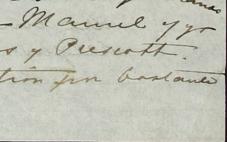 Manuel y yo
s y Prescott.
tion por bastante